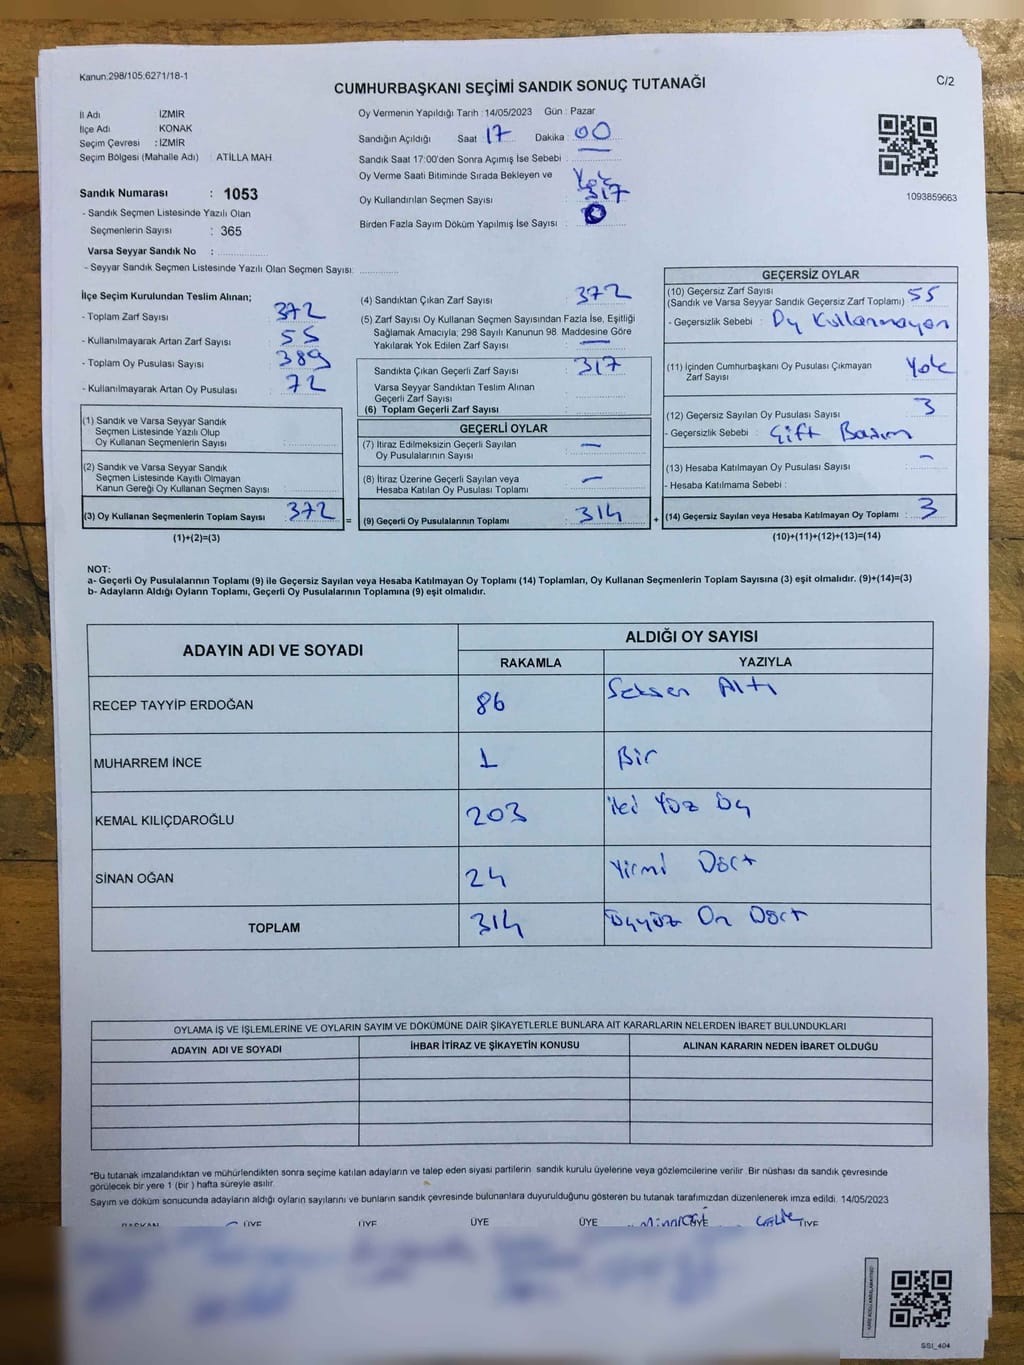 Kanun:298/105;6271/18-1
CUMHURBAŞKANI SEÇİMİ SANDIK SONUÇ TUTANAĞI
C/2
İl Adı İZMİR
İlçe Adı KONAK
Seçim Çevresi : İZMİR
Seçim Bölgesi (Mahalle Adı) : ATİLLA MAH
Sandık Numarası : 1053
- Sandık Seçmen Listesinde Yazılı Olan
Seçmenlerin Sayısı : 365
Varsa Seyyar Sandık No :
- Seyyar Sandık Seçmen Listesinde Yazılı Olan Seçmen Sayısı:
Oy Vermenin Yapıldığı Tarih :14/05/2023 Gün : Pazar
Sandığın Açıldığı Saat : 17 Dakika : 00
Sandık Saat 17:00'den Sonra Açımış İse Sebebi :
Oy Verme Saati Bitiminde Sırada Bekleyen ve Yok
Oy Kullandırılan Seçmen Sayısı : 317
Birden Fazla Sayım Döküm Yapılmış İse Sayısı : 0
1093859663
İlçe Seçim Kurulundan Teslim Alınan;
- Toplam Zarf Sayısı : 372
- Kullanılmayarak Artan Zarf Sayısı : 55
- Toplam Oy Pusulası Sayısı : 389
- Kullanılmayarak Artan Oy Pusulası : 72
(1) Sandık ve Varsa Seyyar Sandık
Seçmen Listesinde Yazılı Olup
Oy Kullanan Seçmenlerin Sayısı :
(2) Sandık ve Varsa Seyyar Sandık
Seçmen Listesinde Kayıtlı Olmayan
Kanun Gereği Oy Kullanan Seçmen Sayısı :
(3) Oy Kullanan Seçmenlerin Toplam Sayısı : 372
(1)+(2)=(3)
(4) Sandıktan Çıkan Zarf Sayısı : 372
(5) Zarf Sayısı Oy Kullanan Seçmen Sayısından Fazla İse, Eşitliği
Sağlamak Amacıyla; 298 Sayılı Kanunun 98. Maddesine Göre
Yakılarak Yok Edilen Zarf Sayısı : —
Sandıkta Çıkan Geçerli Zarf Sayısı : 317
Varsa Seyyar Sandıktan Teslim Alınan
Geçerli Zarf Sayısı :
(6) Toplam Geçerli Zarf Sayısı :
GEÇERLİ OYLAR
(7) İtiraz Edilmeksizin Geçerli Sayılan
Oy Pusulalarının Sayısı : —
(8) İtiraz Üzerine Geçerli Sayılan veya
Hesaba Katılan Oy Pusulası Toplamı : —
= (9) Geçerli Oy Pusulalarının Toplamı : 314 +
GEÇERSİZ OYLAR
(10) Geçersiz Zarf Sayısı
(Sandık ve Varsa Seyyar Sandık Geçersiz Zarf Toplamı) : 55
- Geçersizlik Sebebi : Oy Kullanmayan
(11) İçinden Cumhurbaşkanı Oy Pusulası Çıkmayan
Zarf Sayısı : Yok
(12) Geçersiz Sayılan Oy Pusulası Sayısı : 3
- Geçersizlik Sebebi : Çift Basım
(13) Hesaba Katılmayan Oy Pusulası Sayısı : —
- Hesaba Katılmama Sebebi :
(14) Geçersiz Sayılan veya Hesaba Katılmayan Oy Toplamı : 3
(10)+(11)+(12)+(13)=(14)
NOT:
a- Geçerli Oy Pusulalarının Toplamı (9) ile Geçersiz Sayılan veya Hesaba Katılmayan Oy Toplamı (14) Toplamları, Oy Kullanan Seçmenlerin Toplam Sayısına (3) eşit olmalıdır. (9)+(14)=(3)
b- Adayların Aldığı Oyların Toplamı, Geçerli Oy Pusulalarının Toplamına (9) eşit olmalıdır.
ADAYIN ADI VE SOYADI ALDIĞI OY SAYISI
RAKAMLA YAZIYLA
RECEP TAYYİP ERDOĞAN 86 Seksen Altı
MUHARREM İNCE 1 Bir
KEMAL KILIÇDAROĞLU 203 İki Yüz Üç
SİNAN OĞAN 24 Yirmi Dört
TOPLAM 314 Üçyüz On Dört
OYLAMA İŞ VE İŞLEMLERİNE VE OYLARIN SAYIM VE DÖKÜMÜNE DAİR ŞİKAYETLERLE BUNLARA AİT KARARLARIN NELERDEN İBARET BULUNDUKLARI
ADAYIN ADI VE SOYADI İHBAR İTİRAZ VE ŞİKAYETİN KONUSU ALINAN KARARIN NEDEN İBARET OLDUĞU
*Bu tutanak imzalandıktan ve mühürlendikten sonra seçime katılan adayların ve talep eden siyasi partilerin sandık kurulu üyelerine veya gözlemcilerine verilir. Bir nüshası da sandık çevresinde
görülecek bir yere 1 (bir ) hafta süreyle asılır.
Sayım ve döküm sonucunda adayların aldığı oyların sayılarını ve bunların sandık çevresinde bulunanlara duyurulduğunu gösteren bu tutanak tarafımızdan düzenlenerek imza edildi. 14/05/2023
BAŞKAN ÜYE ÜYE ÜYE ÜYE ÜYE ÜYE
SSI_404